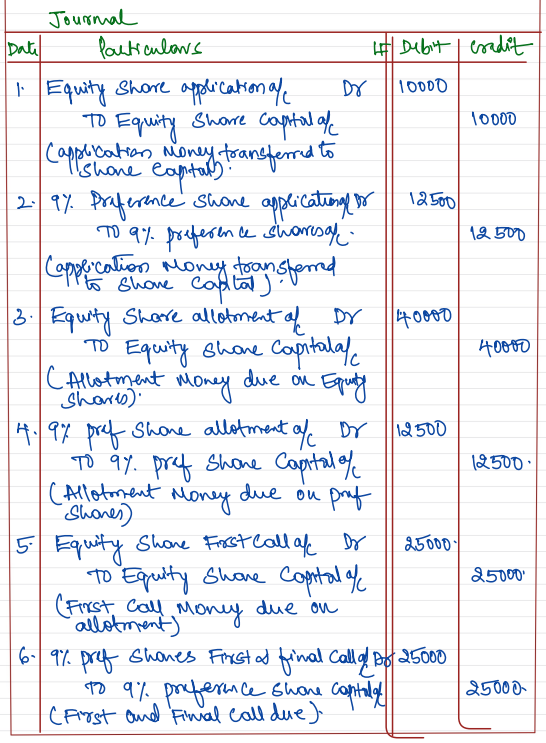 Journal
Date Particulars LF Debit Credit
1. Equity Share application a/c Dr 10000
TO Equity Share Capital a/c 10000
(application Money transferred to
Share Capital).
2. 9% Preference Share application a/c Dr 12500
TO 9% preference shares a/c. 12500
(application Money transferred
to Share Capital).
3. Equity Share allotment a/c Dr 40000
TO Equity Share Capital a/c 40000
(Allotment Money due on Equity
Shares).
4. 9% pref Share allotment a/c Dr 12500
TO 9% pref Share Capital a/c 12500.
(Allotment Money due on pref
Shares)
5. Equity Share First Call a/c Dr 25000.
TO Equity Share Capital a/c 25000.
(First Call Money due on
allotment)
6. 9% pref Shares First & final Call a/c Dr 25000
TO 9% preference Share Capital a/c 25000.
(First and Final Call due).